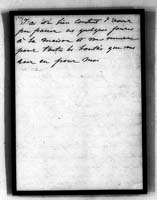 J'ai été bien content d'avoir
pu passer ces quelques jours
à la maison et vous remercie
pour toutes les bontés que vous
avez eu pour moi